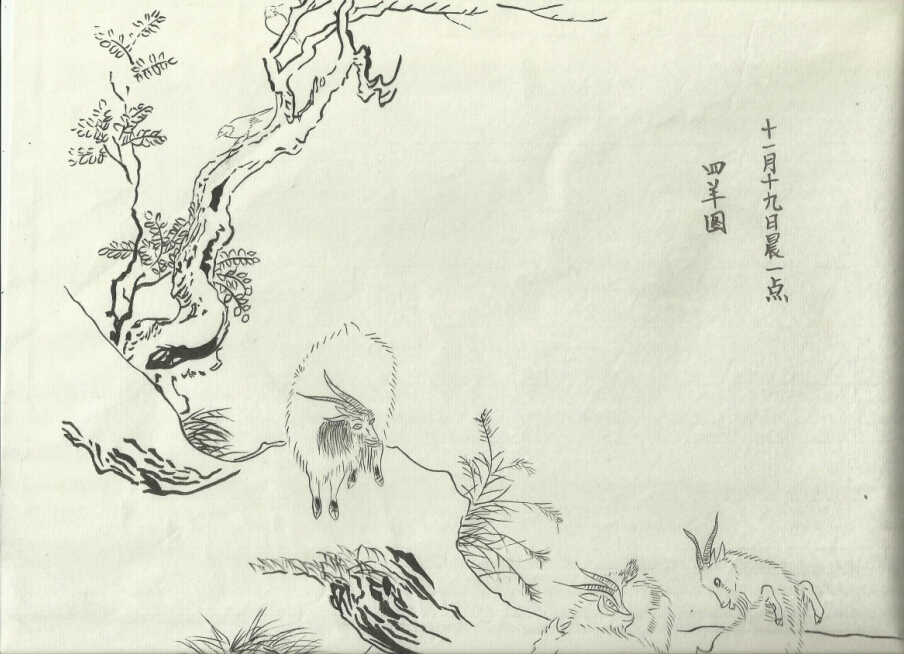 十一月十九日晨一点
四羊图